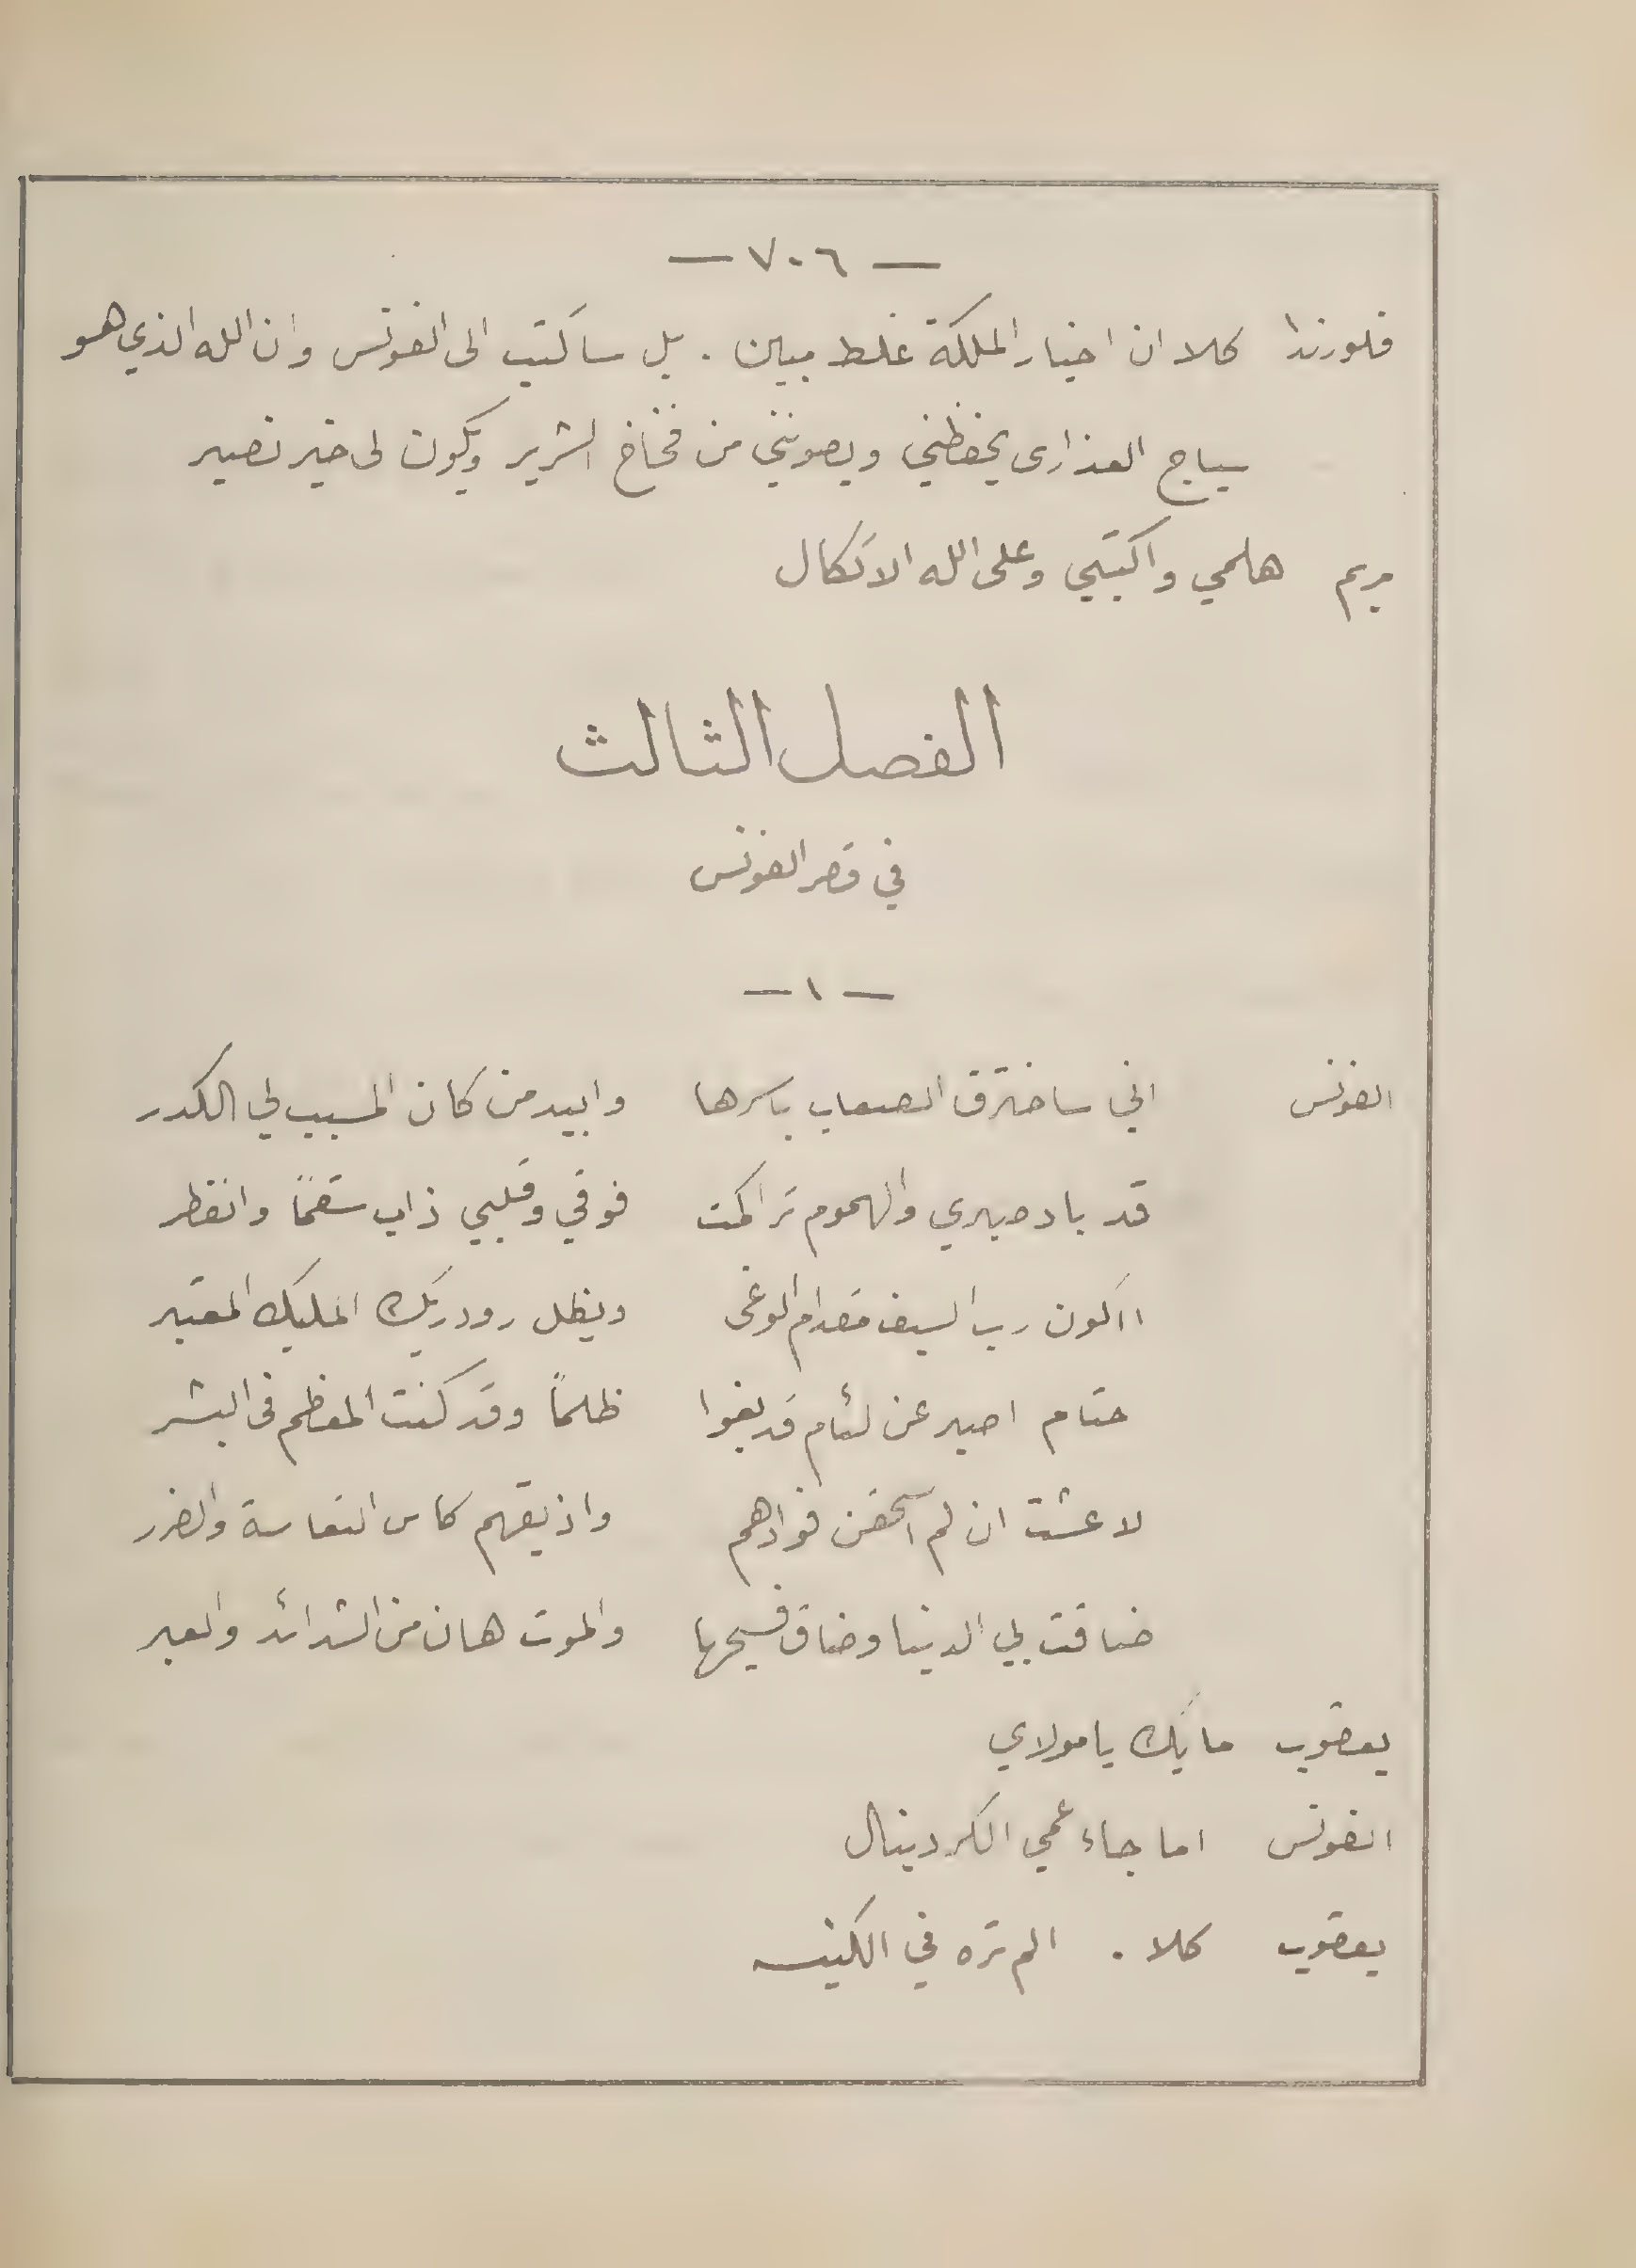 — ٧٠٦ —
فلورندا كلا ان اخبار الملكة غلط مبين . بل ساكتب الى الفونس وان الله الذي هو
سياج العذارى يحفظني ويصونني من فخاخ الشرير ويكون لي خير نصير
مريم هلمي واكتبي وعلى الله الاتكال
الفصل الثالث
في قصر الفونس
— ١ —
الفونس اني ساخترق الصعاب باسرها وابيد من كان المسبب لي الكدر
قد باد صبري والهموم تراكمت فوقي وقلبي ذاب سقمًا وانفطر
ااكون رب السيف مقدام الوغى ويظل رودريك المليك المعتبر
حتام اصبر عن لئام قد بغوا ظلمًا وقد كنت المعظم في البشر
لا عشت ان لم اسحقن فوادهم واذيقهم كاس التعاسة والضرر
ضاقت بي الدنيا وضاق فسيحها والموت هان من الشدائد والعبر
يعقوب ما بك يا مولاي
الفونس اما جاء عمي الكردينال
يعقوب كلا . الم تره في الكنيسه